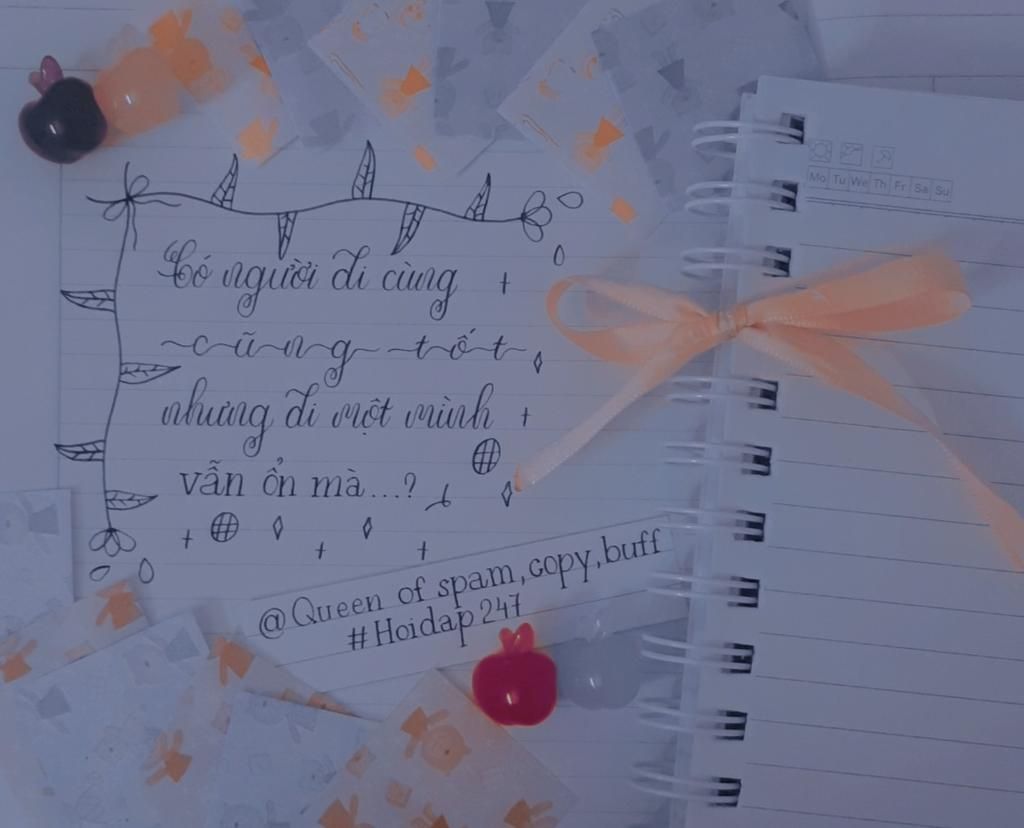 Có người đi cùng
~c~ũ~n~g~ ~t~ố~t~
nhưng đi một mình
vẫn ổn mà...?
@Queen of spam,copy,buff
#Hoidap247
Mo Tu We Th Fr Sa Su